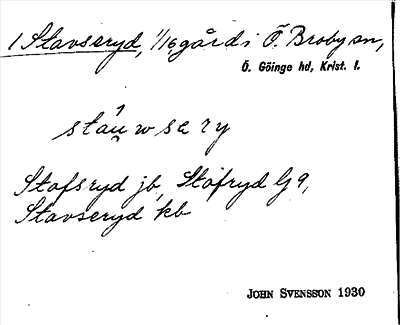 1 Stavseryd, 1/16 gård i Ö. Broby sn,
Ö. Göinge hd, Krist. l.
stáu̯wsery
Stafsryd jb, Stofryd G9,
Stavseryd kb
JOHN SVENSSON 1930